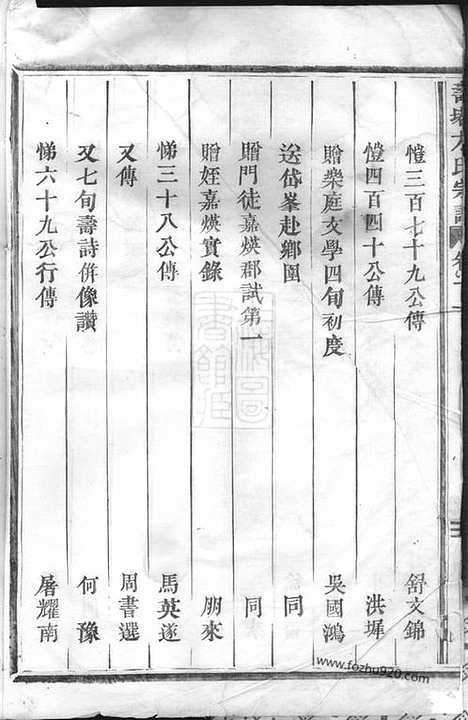 方氏宗譜 卷之一
愷三百七十九公傳 舒文錦
愷四百四十公傳 洪墀
贈樂庭文學四旬初度 吳國鴻
送岱峯赴鄉闈 同
贈門徒嘉煐郡試第一 同
贈姪嘉煐實錄 朋來
悌三十八公傳 馬英遂
又傳 周書選
又七旬壽詩併像讚 何豫
悌六十九公行傳 屠耀南
上海圖書館藏
www.fozhu920.com